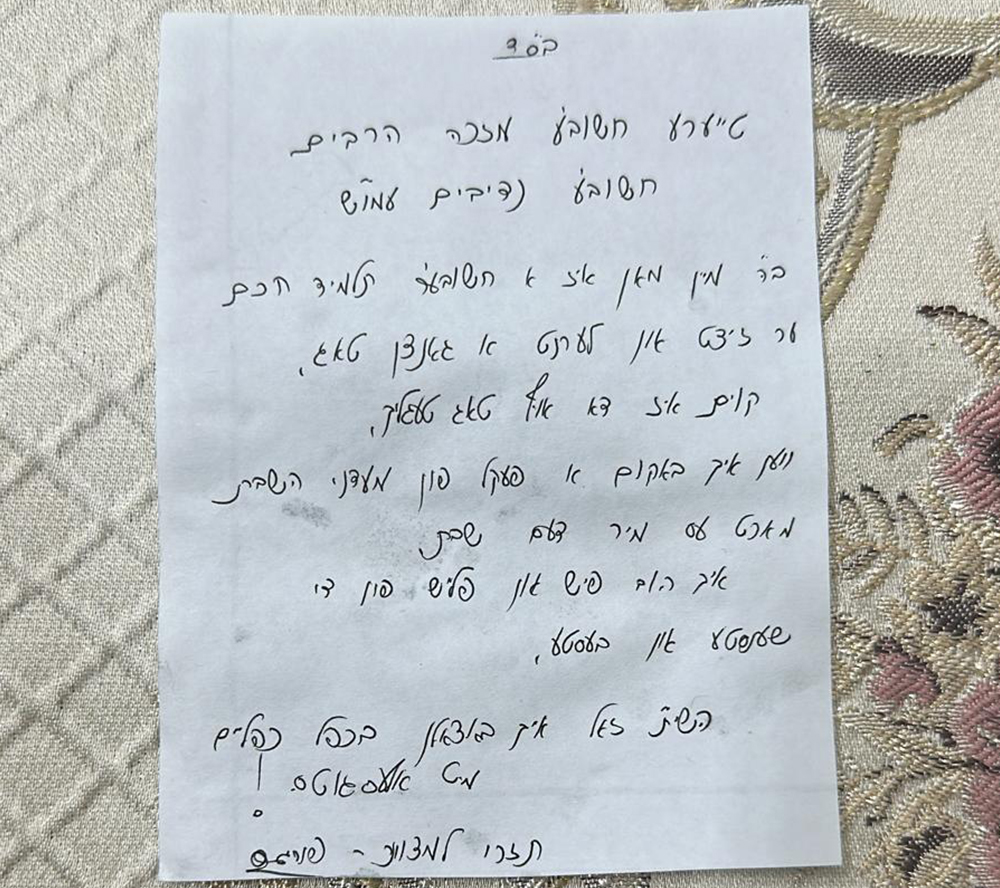 בס"ד
טייערע חשובע מזכה הרבים
חשובע נדיבים עמו"ש
ב"ה מיין מאן איז א חשובער תלמיד חכם
ער זיצט און לערנט א גאנצן טאג,
קוים איז דא אויף טאג טעגליך,
ווען איך באקום א פעקל פון מעדני השבת
מאכט עס מיר דעם שבת
איך האב פיש און פלייש פון די
שענסטע און בעסטע,
השי"ת זאל אייך באצאלן בכפל כפלים
מיט אלעס גוטס!
תזכו למצוות -